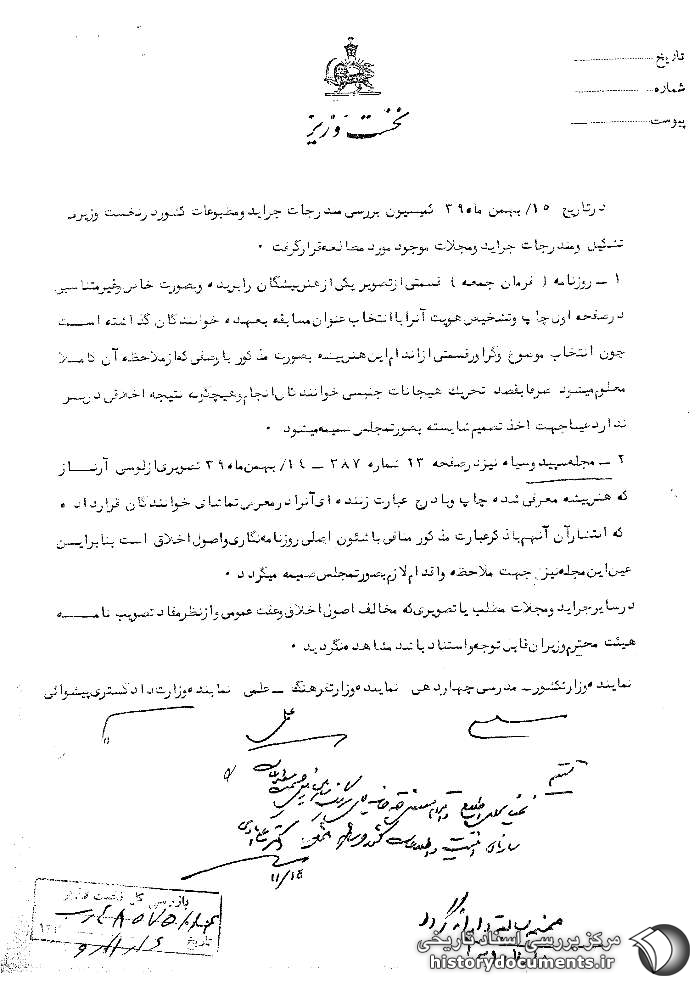 تاریخ
شماره
پیوست
نخست وزیر
در تاریخ ۱۵/ بهمن ماه ۳۹ کمیسیون بررسی مندرجات جراید و مطبوعات کشور در نخست وزیری
تشکیل و مندرجات جراید و مجلات موجود مورد مطالعه قرار گرفت ۰
۱ ــ روزنامه ( فرمان جمعه ) قسمتی از تصویر یکی از هنرپیشگان را بریده و بصورت خاص و غیر متناسبی
در صفحه اول چاپ و تشخیص هویت آنرا با انتخاب عنوان مسابقه بعهده خوانندگان گذاشته است
چون انتخاب موضوع و گراور قسمتی از اندام این هنرپیشه بصورت مذکور با وصفی که از ملاحظه آن کاملا
معلوم میشود صرفا بقصد تحریک هیجانات جنسی خوانندگان انجام و هیچگونه نتیجه اخلاقی در بر
ندارد عینا جهت اخذ تصمیم شایسته بصورتمجلس ضمیمه میشود ۰
۲ ــ مجله سپید و سیاه نیز در صفحه ۲۳ شماره ۳۸۷ ــ ۱۴/ بهمن ماه ۳۹ تصویری از لوسی آرناز
که هنرپیشه معرفی شده چاپ و با درج عبارت زننده ای آنرا در معرض تماشای خوانندگان قرار داده
که انتشار آن آنهم با ذکر عبارت مذکور منافی با شئون اصلی روزنامه نگاری و اصول اخلاق است بنابراین
عین این مجله نیز جهت ملاحظه و اقدام لازم بصورتمجلس ضمیمه میگردد ۰
در سایر جراید و مجلات مطلب یا تصویری که مخالف اصول اخلاق و عفت عمومی و از نظر مفاد تصویب نامه
هیئت محترم وزیران قابل توجه و استناد باشد مشاهده نگردید ۰
نماینده وزارتکشور ــ مدرسی چهاردهی نماینده وزارتفرهنگ ــ علمی نماینده وزارت دادگستری پیشوائی
۱۱/۱۵
بازرسی کل نخست وزیر
تاریخ
مرکز بررسی اسناد تاریخی
historydocuments.ir